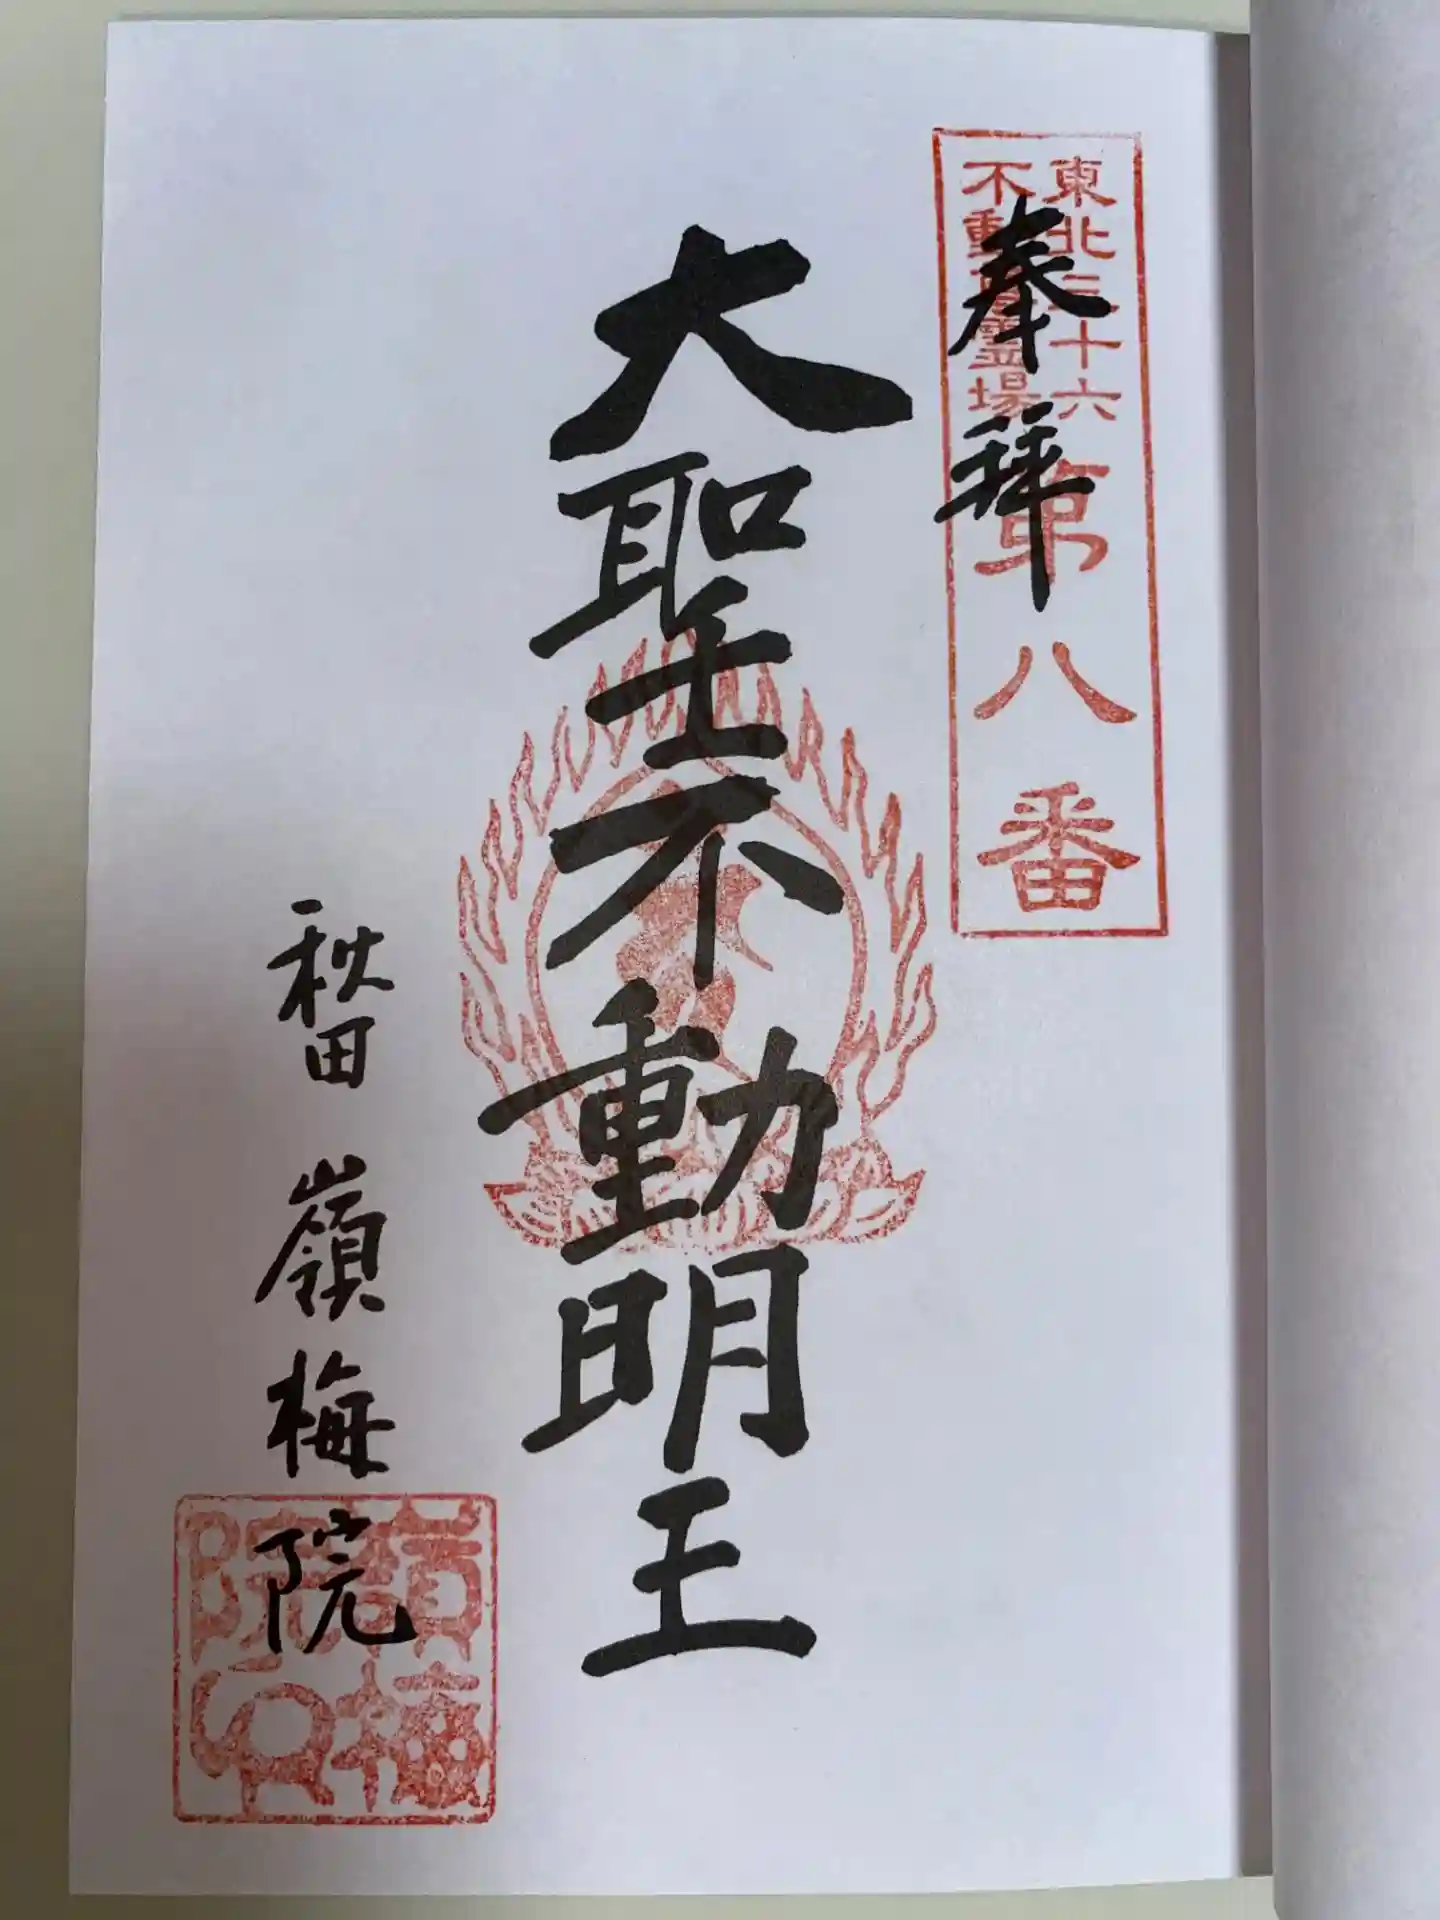 東北三十六
不動尊霊場
第八番
奉拝
大聖不動明王
秋田 嶺梅院
嶺梅
院印